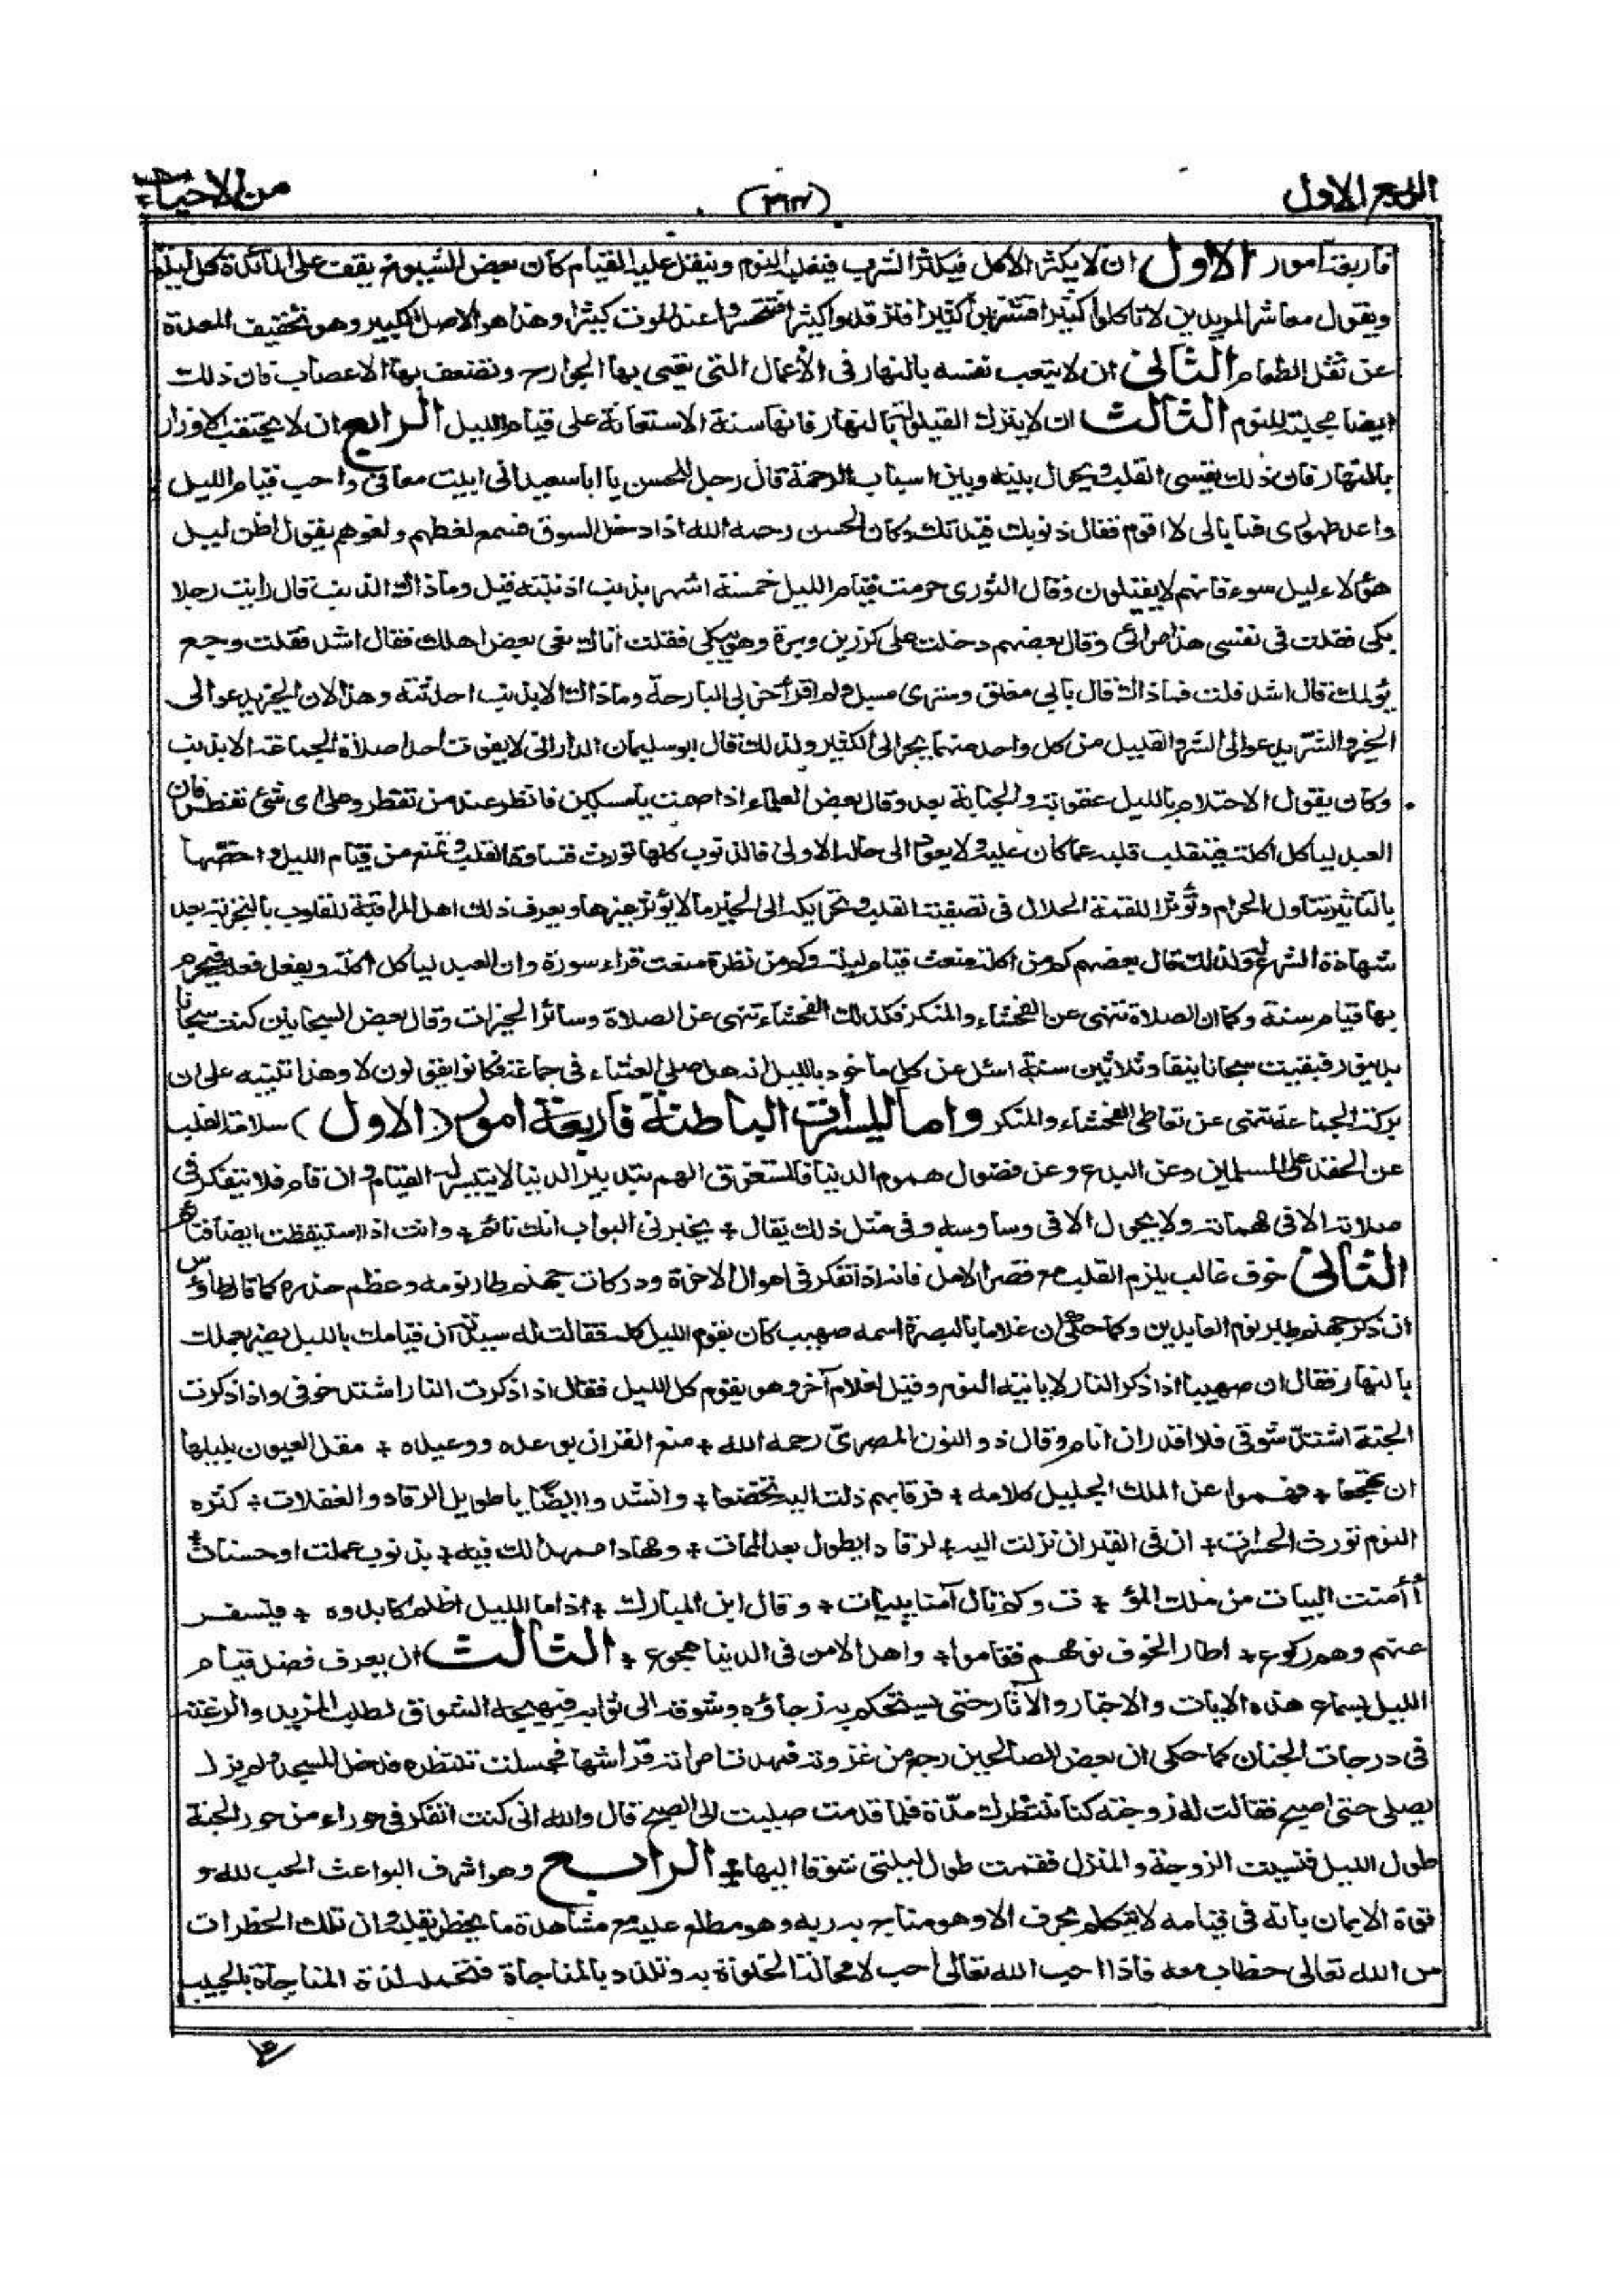 الربع الاول
(٣١٢)
من الاحياء
فاربعة امور الاول ان لا يكثر الاكل فيكثر الشرب فيغلبه النوم ويثقل عليه القيام كان بعض الشيوخ يقف على المائدة كل ليلة
ويقول معاشر المريدين لا تاكلوا كثيرا فتشربوا كثيرا فترقدوا كثيرا فتتحسروا عند الموت كثيرا وهذا هو الاصل الكبير وهو تخفيف المعدة
عن ثقل الطعام الثانى ان لا يتعب نفسه بالنهار فى الأعمال التى تعيى بها الجوارح وتضعف بها الاعصاب فان ذلك
ايضا مجلبة للنوم الثالث ان لا يترك القيلولة بالنهار فانها سنة الاستعانة على قيام الليل الرابع ان لا يحتقب الاوزار
بالنهار فان ذلك يقسى القلب ويحول بينه وبين اسباب الرحمة قال رجل للحسن يا ابا سعيد انى ابيت معافى واحب قيام الليل
واعد طهورى فما بالى لا اقوم فقال ذنوبك قيدتك وكان الحسن رحمه الله اذا دخل السوق فسمع لغطهم ولغوهم يقول اظن ليل
هؤلاء ليل سوء فانهم لا يقيلون وقال الثورى حرمت قيام الليل خمسة اشهر بذنب اذنبته قيل وما ذاك الذنب قال رايت رجلا
يبكى فقلت فى نفسى هذا مرائى وقال بعضهم دخلت على كرز بن وبرة وهو يبكى فقلت اتاك نعى بعض اهلك فقال اشد فقلت وجع
يؤلمك قال اشد قلت فما ذاك قال بابى مغلق وسترى مسبل ولم اقرأ حزبى البارحة وما ذاك الا بذنب احدثته وهذا لان الخير يدعو الى
الخير والشر يدعو الى الشر والقليل من كل واحد منهما يجر الى الكثير ولذلك قال ابو سليمان الدارانى لا يفوت احدا صلاة الجماعة الا بذنب
وكان يقول الاحتلام بالليل عقوبة والجنابة بعد وقال بعض العلماء اذا صمت يا مسكين فانظر عند من تفطر وعلى اى شئ تفطر فان
العبد لياكل اكلة فينقلب قلبه عما كان عليه ولا يعود الى حاله الاولى فالذنوب كلها تورث قساوة القلب وتمنع من قيام الليل واخصها
بالتاثير تناول الحرام وتؤثر اللقمة الحلال فى تصفية القلب وتحريكه الى الخير ما لا يؤثر غيرها ويعرف ذلك اهل المراقبة للقلوب بالتجربة بعد
شهادة الشرع له ولذلك قال بعضهم كم من اكلة منعت قيام ليلة وكم من نظرة منعت قراءة سورة وان العبد لياكل اكلة ويفعل فعلة فيحرم
بها قيام سنة وكما ان الصلاة تنهى عن الفحشاء والمنكر فكذلك الفحشاء تنهى عن الصلاة وسائر الخيرات وقال بعض السجانين كنت سجانا
فبقيت سجانا نيفا وثلاثين سنة اسئل عن كل ماخوذ بالليل انه هل صلى العشاء فى جماعة فكانوا يقولون لا وهذا تنبيه على ان
بركة الجماعة تنهى عن تعاطى الفحشاء والمنكر واما الميسرات الباطنة فاربعة امور (الاول) سلامة القلب
عن الحقد على المسلمين وعن البدع وعن فضول هموم الدنيا فالمستغرق الهم بتدبير الدنيا لا يتيسر له القيام وان قام فلا يتفكر فى
صلاته الا فى مهماته ولا يجول الا فى وساوسه وفى مثل ذلك يقال + يخبرنى البواب انك نائم + وانت اذا استيقظت ايضا فنائم
الثانى خوف غالب يلزم القلب مع قصر الامل فانه اذا تفكر فى اهوال الاخرة ودركات جهنم طار نومه وعظم حذره كما قال طاؤس
ان ذكر جهنم طير نوم العابدين وكما حكى ان غلاما بالبصرة اسمه صهيب كان يقوم الليل كله فقالت له سيدته ان قيامك بالليل يضر بعملك
بالنهار فقال ان صهيبا اذا ذكر النار لا ياتيه النوم وقيل لغلام آخر وهو يقوم كل الليل فقال اذا ذكرت النار اشتد خوفى واذا ذكرت
الجنة اشتد شوقى فلا اقدر ان انام وقال ذو النون المصرىّ رحمه الله + منع القران بوعده ووعيده + مقل العيون بليلها
ان تهجعا + فهموا عن الملك الجليل كلامه + فرقابهم ذلت اليه تخضعا + وانشدوا ايضًا يا طويل الرقاد والغفلات + كثرة
النوم تورث الحسرات + ان فى القبر ان نزلت اليه + لرقادا يطول بعد الممات + ومهادا ممهدا لك فيه + بذنوب عملت او حسنات +
أأمنت البيات من ملك المو + ت وكم نال آمنا ببيات + وقال ابن المبارك + اذا ما الليل اظلم كابدوه + فيسفر
عنهم وهم ركوع + اطار الخوف نومهم فقاموا + واهل الامن فى الدنيا هجوع + الثالث ان يعرف فضل قيام
الليل بسماع هذه الايات والاخبار والاثار حتى يستحكم به رجاؤه وشوقه الى ثوابه فيهيجه الشوق لطلب المزيد والرغبة
فى درجات الجنان كما حكى ان بعض الصالحين رجع من غزوته فمهدت امراته فراشها وجلست تنتظره فدخل المسجد ولم يزل
يصلى حتى اصبح فقالت له زوجته كنا ننتظرك مدة فلما قدمت صليت الى الصبح قال والله انى كنت اتفكر فى حوراء من حور الجنة
طول الليل فنسيت الزوجة والمنزل فقمت طول ليلتى شوقا اليها + الرابع وهو اشرف البواعث الحب لله و
قوة الايمان بانه فى قيامه لا يتكلم بحرف الا وهو مناج به ربه وهو مطلع عليه مع مشاهدة ما يخطر بقلبه وان تلك الخطرات
من الله تعالى خطاب معه فاذا احب الله تعالى احب لا محالة الخلوة به وتلذذ بالمناجاة فتحمله لذة المناجاة بالحبيب